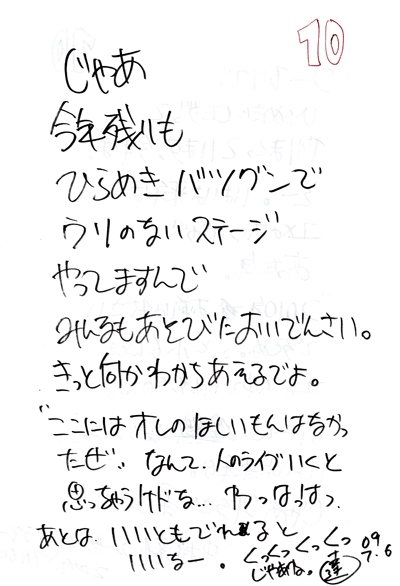 10
じゃあ
今年残りも
ひらめきバツグンで
ウソのないステージ
やってますんで
みんなもあそびにおいでんさい。
きっと何かわかちあえるでよ。
"ここにはオレのほしいもんはなかっ
たぜ" なんて、人のライブいくと
思っちゃうけどな… わっはっはっ
あとは いいともでれると
いいなー。くっくっくっくっ
じゃあね。達
09
7.6